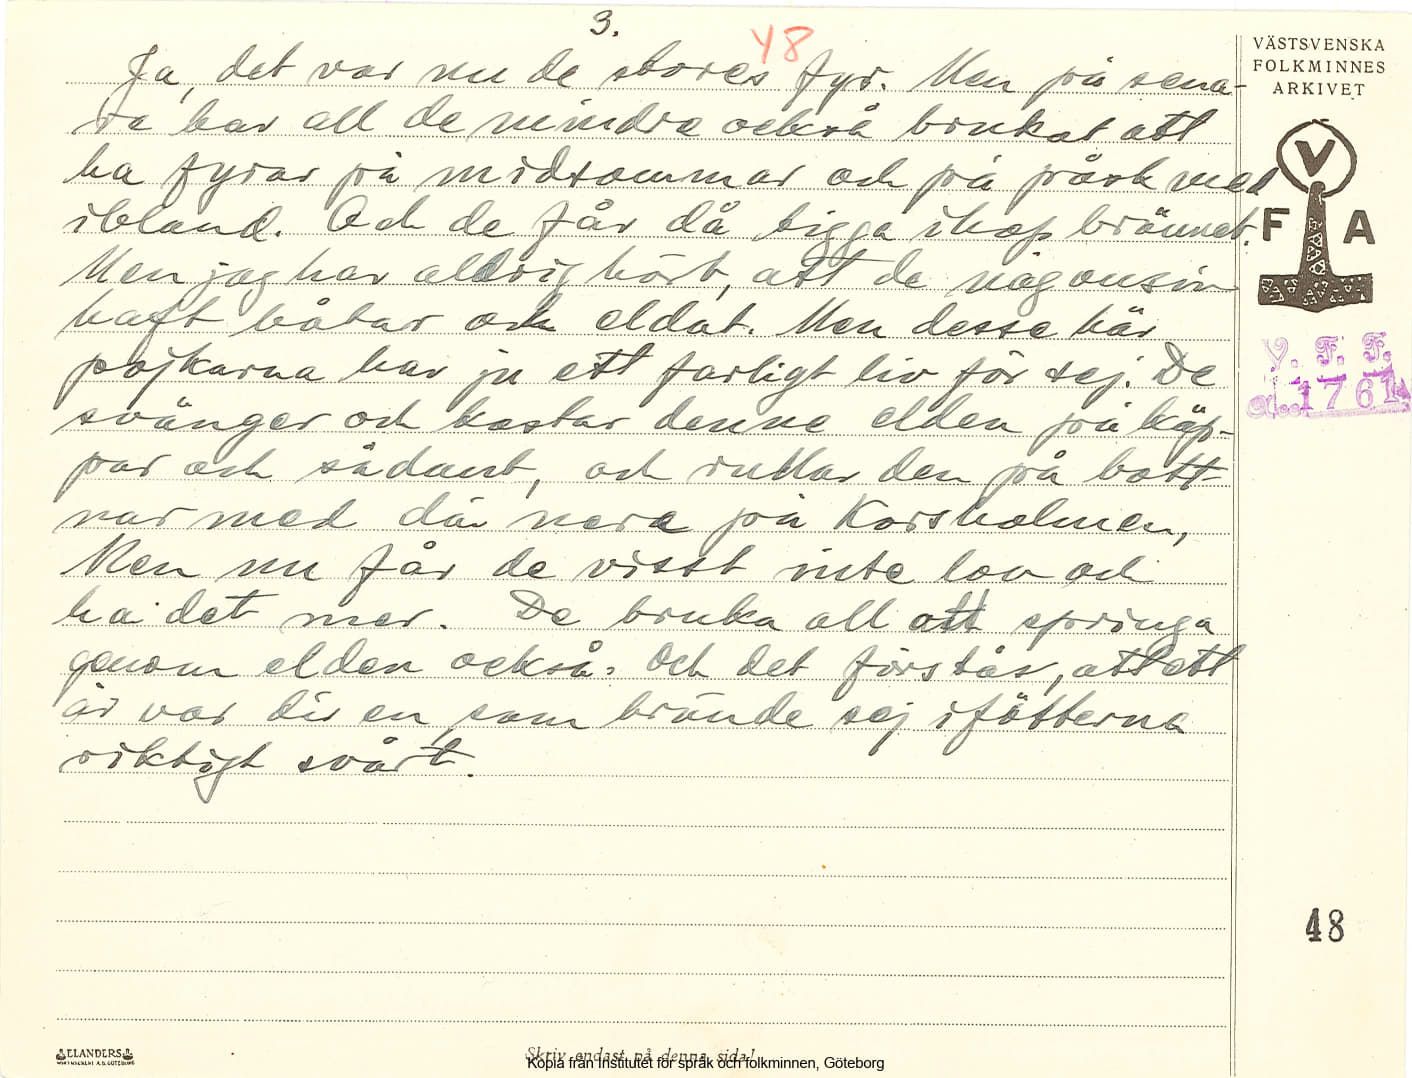 3.
48
Ja, det var nu de stores fyr. Men på sena-
re har all de mindre också brukat att
ha fyrar på midsommar och på påsk med
ibland. Och de får då tigga ihop brännet.
Men jag har aldrig hört, att de någonsin
haft båtar och eldat. Men desse här
pojkarna har ju ett farligt liv för sej. De
svänger och kastar denne elden på käp-
par och sådant, och rullar den på bott-
nar med där nere på Korsholmen,
Men nu får de visst inte lov och
ha det mer. De bruka all att springa
genom elden också. Och det förstås, att ett
år var där en, som brände sej i fötterna
riktigt svårt.
VÄSTSVENSKA
FOLKMINNES
ARKIVET
V
F A
V. F. F.
1761
48
ELANDERS
Skriv endast på denna sida!
Kopia från Institutet för språk och folkminnen, Göteborg